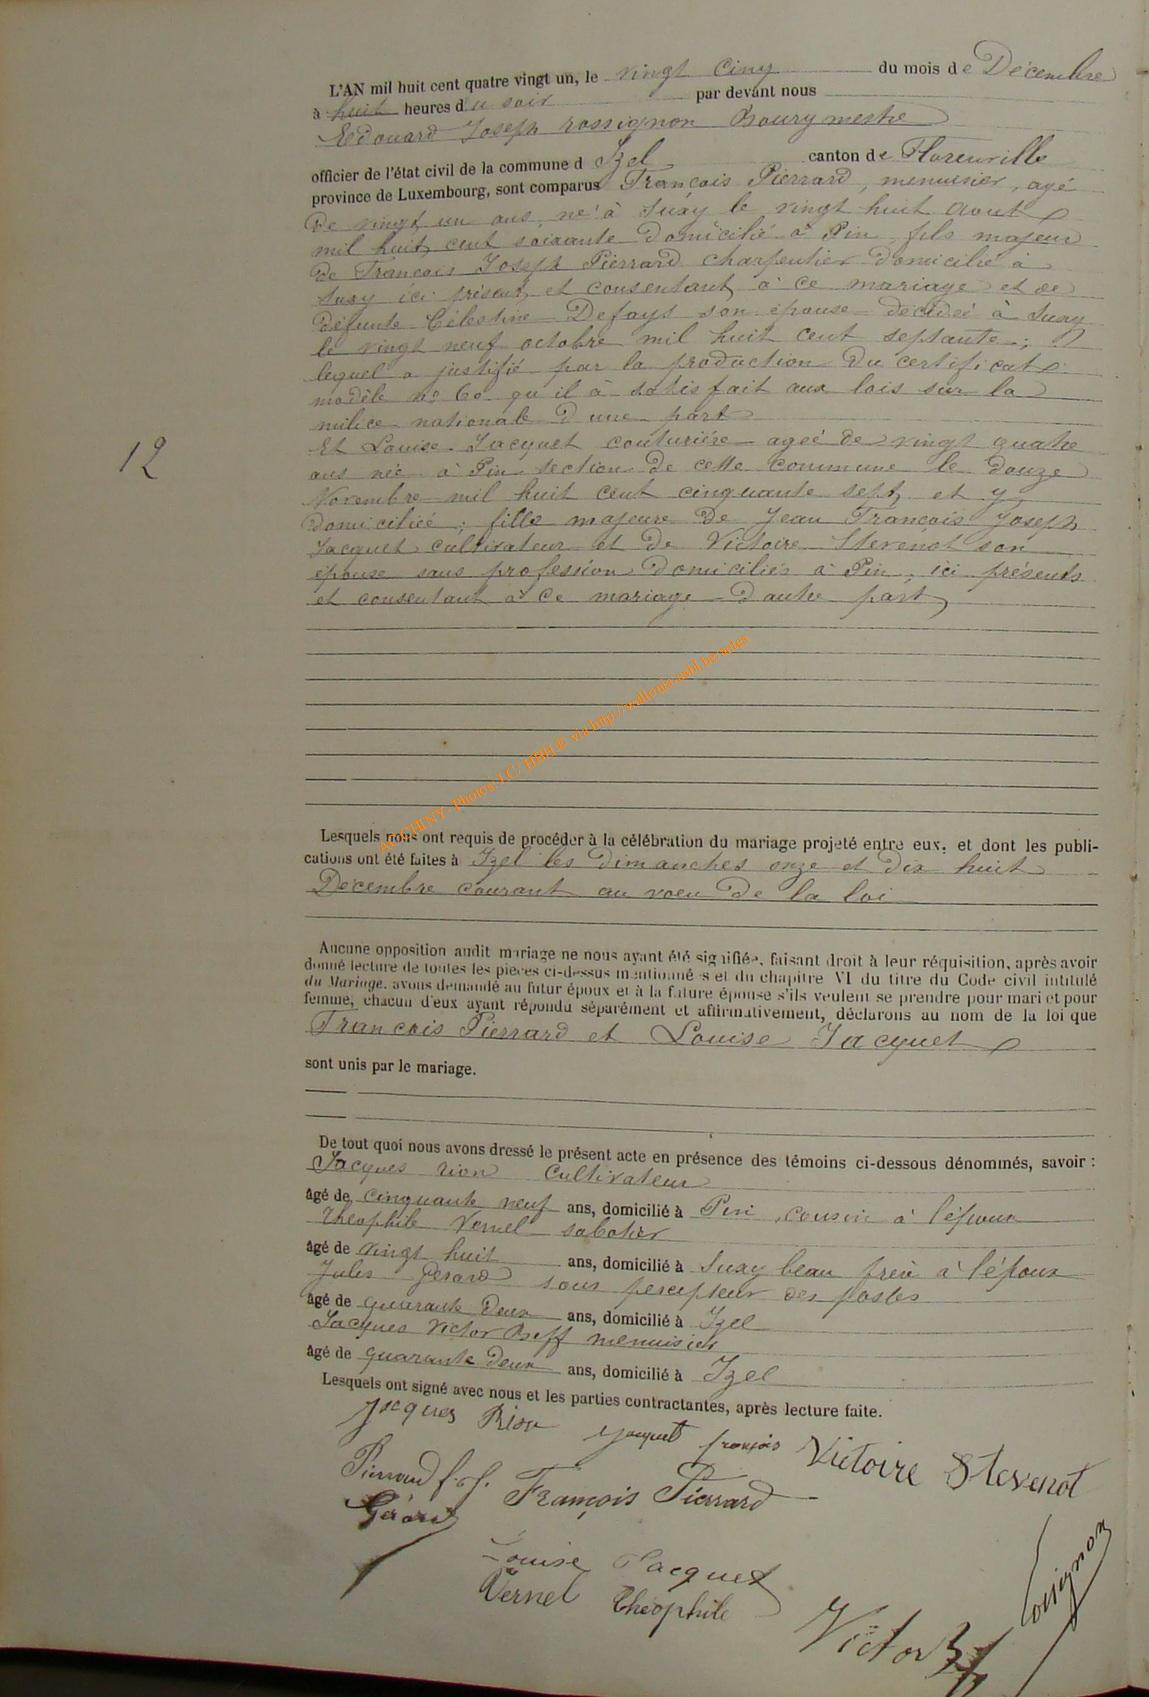 L'AN mil huit cent quatre vingt un, le vingt cinq du mois de Décembre
à huit heures du soir par devant nous
Edouard Joseph rossignon Bourgmestre
officier de l'état civil de la commune d Izel canton de Florenville
province de Luxembourg, sont comparus François Pierrard, menuisier, agé
de vingt un ans né à Suxy le vingt huit aout
mil huit cent soixante domicilié à Pin fils majeur
de François Joseph Pierrard charpentier domicilié à
Suxy ici présent et consentant à ce mariage et de
défunte Célestine Defays son épouse décédée à Suxy
le vingt neuf octobre mil huit cent septante;
lequel a justifié par la production du certificat
modèle no 60 qu'il à satisfait aux lois sur la
milice nationale d'une part
Et Louise Jacquet couturière agée de vingt quatre
ans née à Pin section de cette commune le douze
12
Novembre mil huit cent cinquante sept et y
domiciliée; fille majeure de Jean François Joseph
Jacquet cultivateur et de Victoire Stevenot son
épouse sans profession domiciliés à Pin, ici présents
et consentant à ce mariage d'autre part
ACTCHINY- Photos via http://
Lesquels nous ont requis de procéder à la célébration du mariage projeté entre eux, et dont les publi-
cations ont été faites à Izel les dimanches onze et dix huit
Décembre courant au voeu de la loi
Aucune opposition audit mariage ne nous ayant été signifiée, faisant droit à leur réquisition, après avoir
donné lecture de toutes les pièces ci-dessus mentionnées et du chapitre VI du titre du Code civil intitulé
du Mariage, avons demandé au futur époux et à la future épouse s'ils veulent se prendre pour mari et pour
femme, chacun d'eux ayant répondu séparément et affirmativement, déclarons au nom de la loi que
François Pierrard et Louise Jacquet
sont unis par le mariage.
De tout quoi nous avons dressé le présent acte en présence des témoins ci-dessous dénommés, savoir :
Jacques rion Cultivateur
âgé de cinquante neuf ans, domicilié à Pin, cousin à l'époux
théophile Vernel sabotier
âgé de vingt huit ans, domicilié à Suxy beau frère à l'époux
Jules Gerard sous percepteur des postes
âgé de quarante deux ans, domicilié à Izel
Jacques Victor menuisier
âgé de quarante deux ans, domicilié à Izel
Lesquels ont signé avec nous et les parties contractantes, après lecture faite.
Jacques Rion Jacquet françois Victoire Stevenot
Pierrard f. J. François Pierrard
Gérard
Louise Jacquet
Vernel théophile
rossignon
Victor